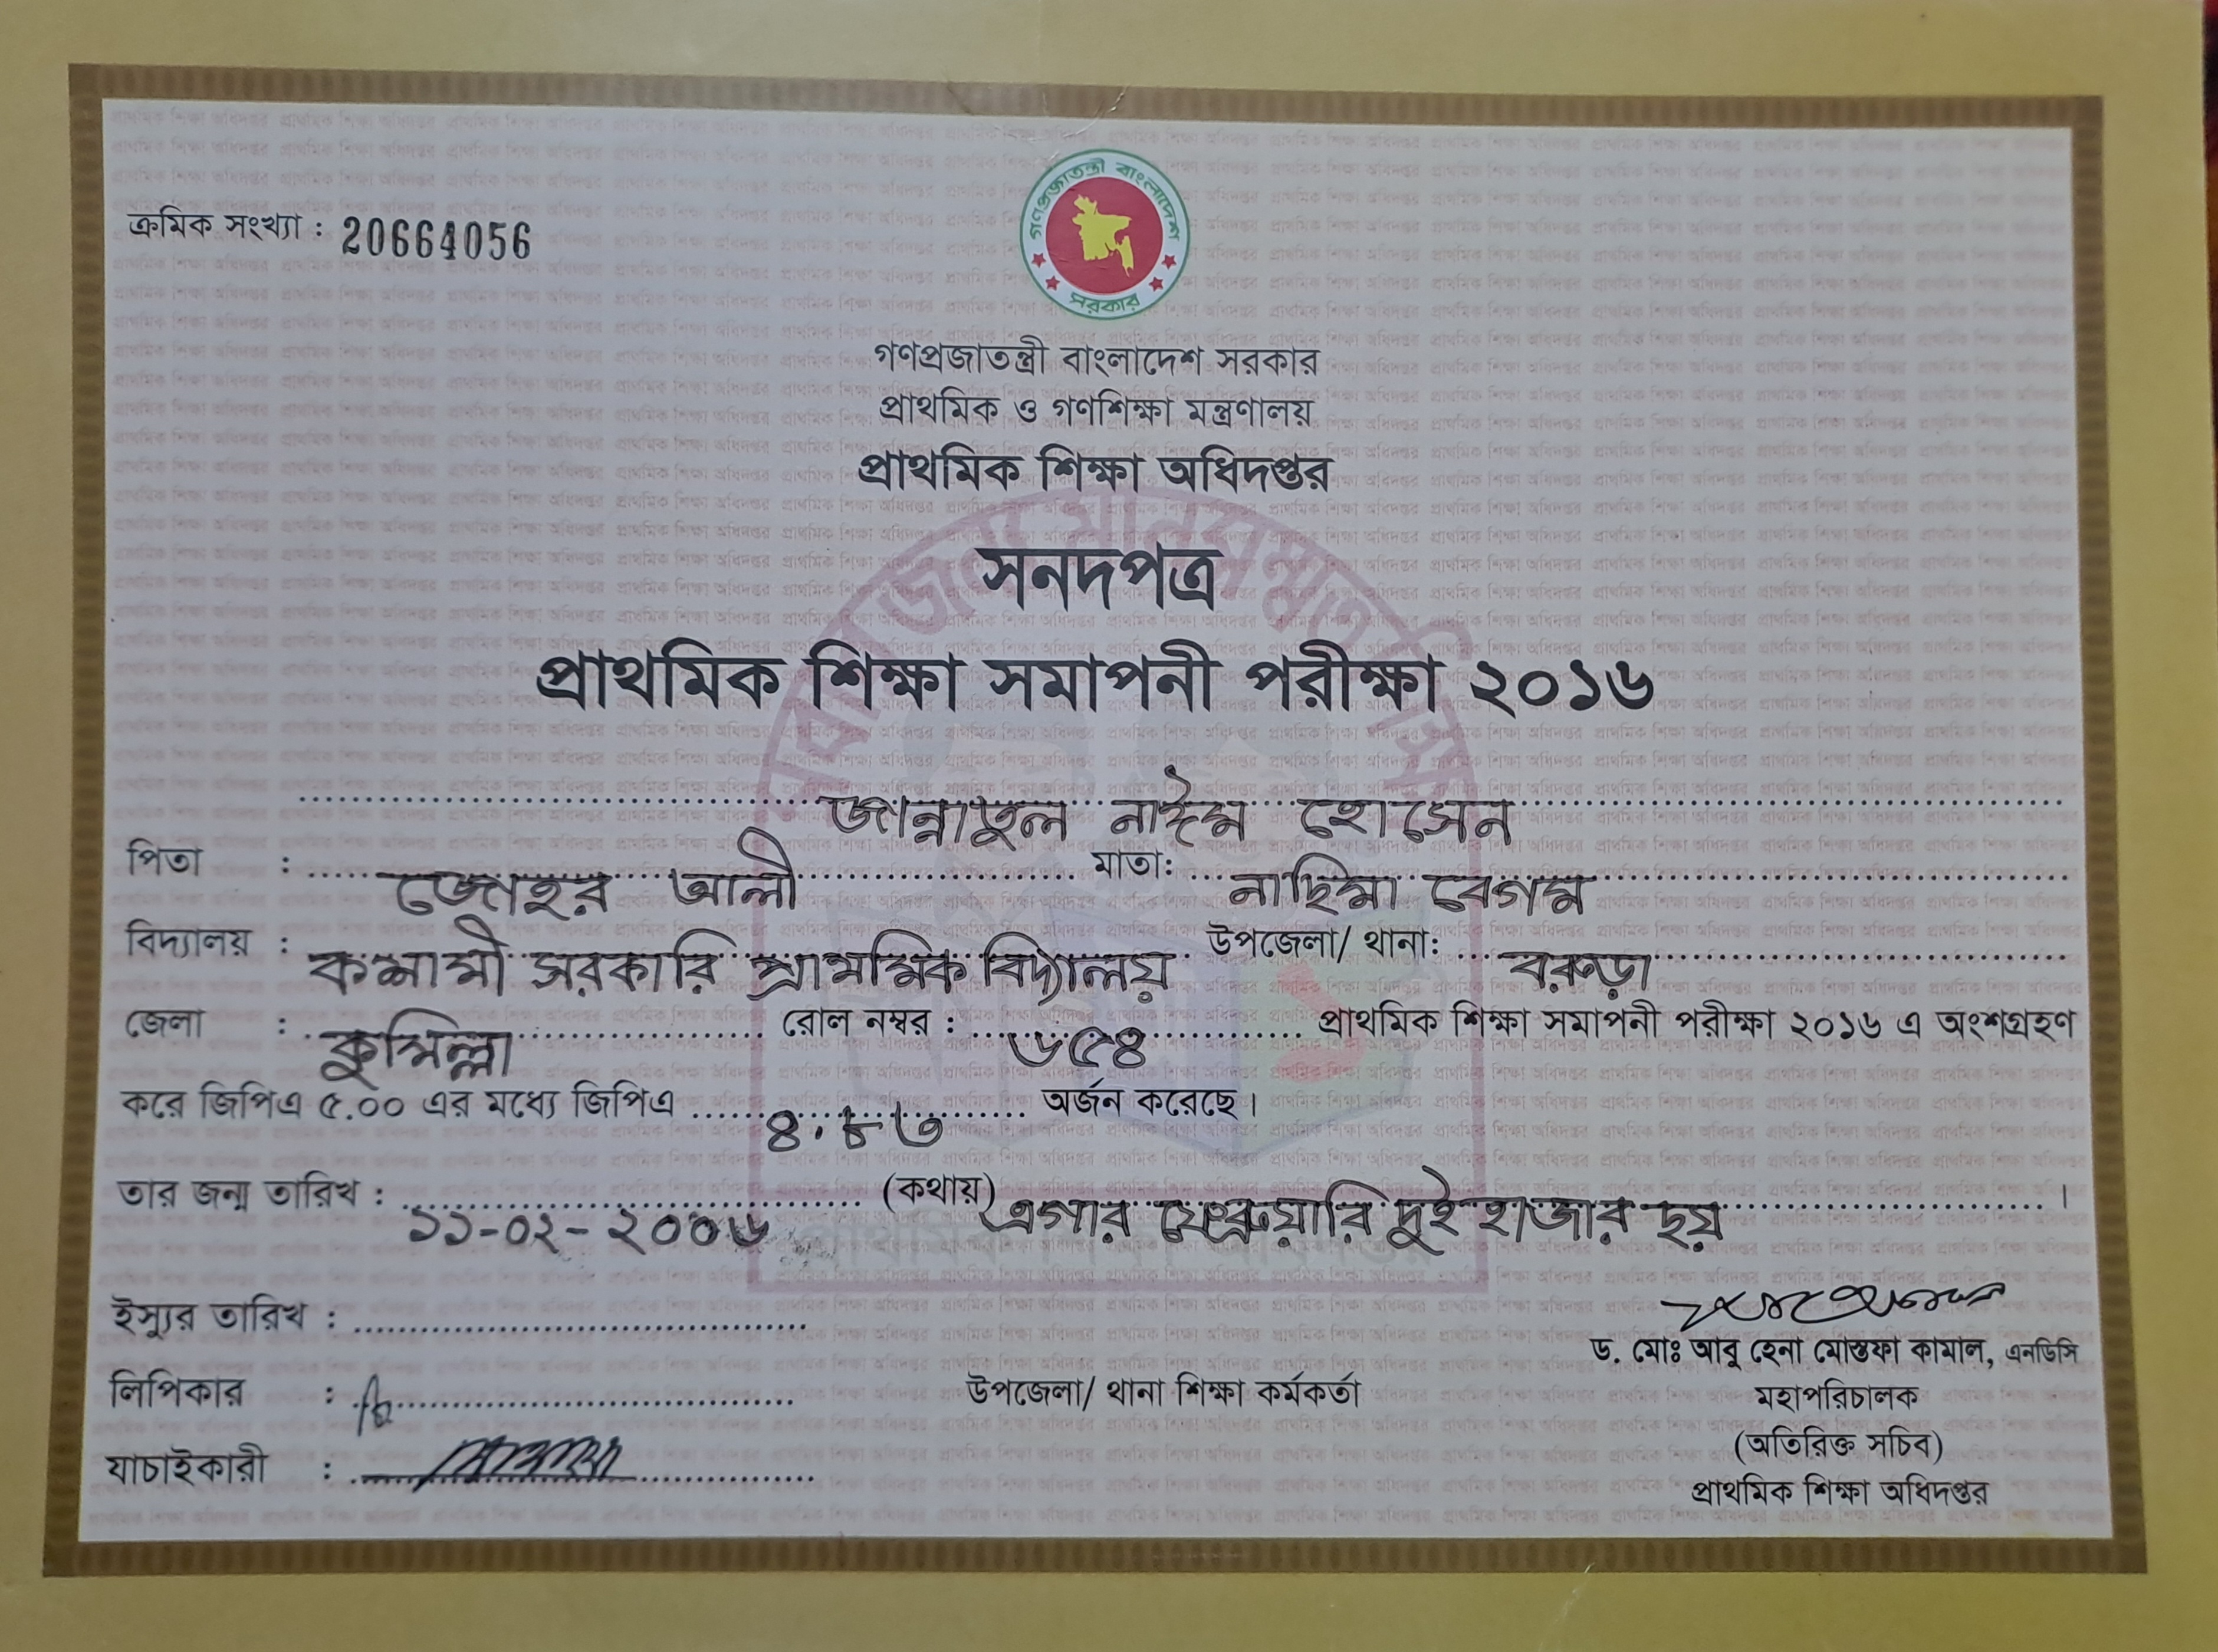 ক্রমিক সংখ্যা : 20664056
গণপ্রজাতন্ত্রী বাংলাদেশ
সরকার
গণপ্রজাতন্ত্রী বাংলাদেশ সরকার
প্রাথমিক ও গণশিক্ষা মন্ত্রণালয়
প্রাথমিক শিক্ষা অধিদপ্তর
সনদপত্র
প্রাথমিক শিক্ষা সমাপনী পরীক্ষা ২০১৬
জান্নাতুল নাঈম হোসেন
পিতা : জোহর আলী মাতা: নাছিমা বেগম
বিদ্যালয় : সরকারি প্রাথমিক বিদ্যালয় উপজেলা/ থানা: বরুড়া
জেলা : কুমিল্লা রোল নম্বর : ৬৫৪ প্রাথমিক শিক্ষা সমাপনী পরীক্ষা ২০১৬ এ অংশগ্রহণ
করে জিপিএ ৫.০০ এর মধ্যে জিপিএ ৪.৮৩ অর্জন করেছে।
তার জন্ম তারিখ : ১১-০২-২০০৬ (কথায়) এগার ফেব্রুয়ারি দুই হাজার ছয় ।
ইস্যুর তারিখ :
ড. মোঃ আবু হেনা মোস্তফা কামাল, এনডিসি
লিপিকার : উপজেলা/ থানা শিক্ষা কর্মকর্তা মহাপরিচালক
(অতিরিক্ত সচিব)
যাচাইকারী : প্রাথমিক শিক্ষা অধিদপ্তর